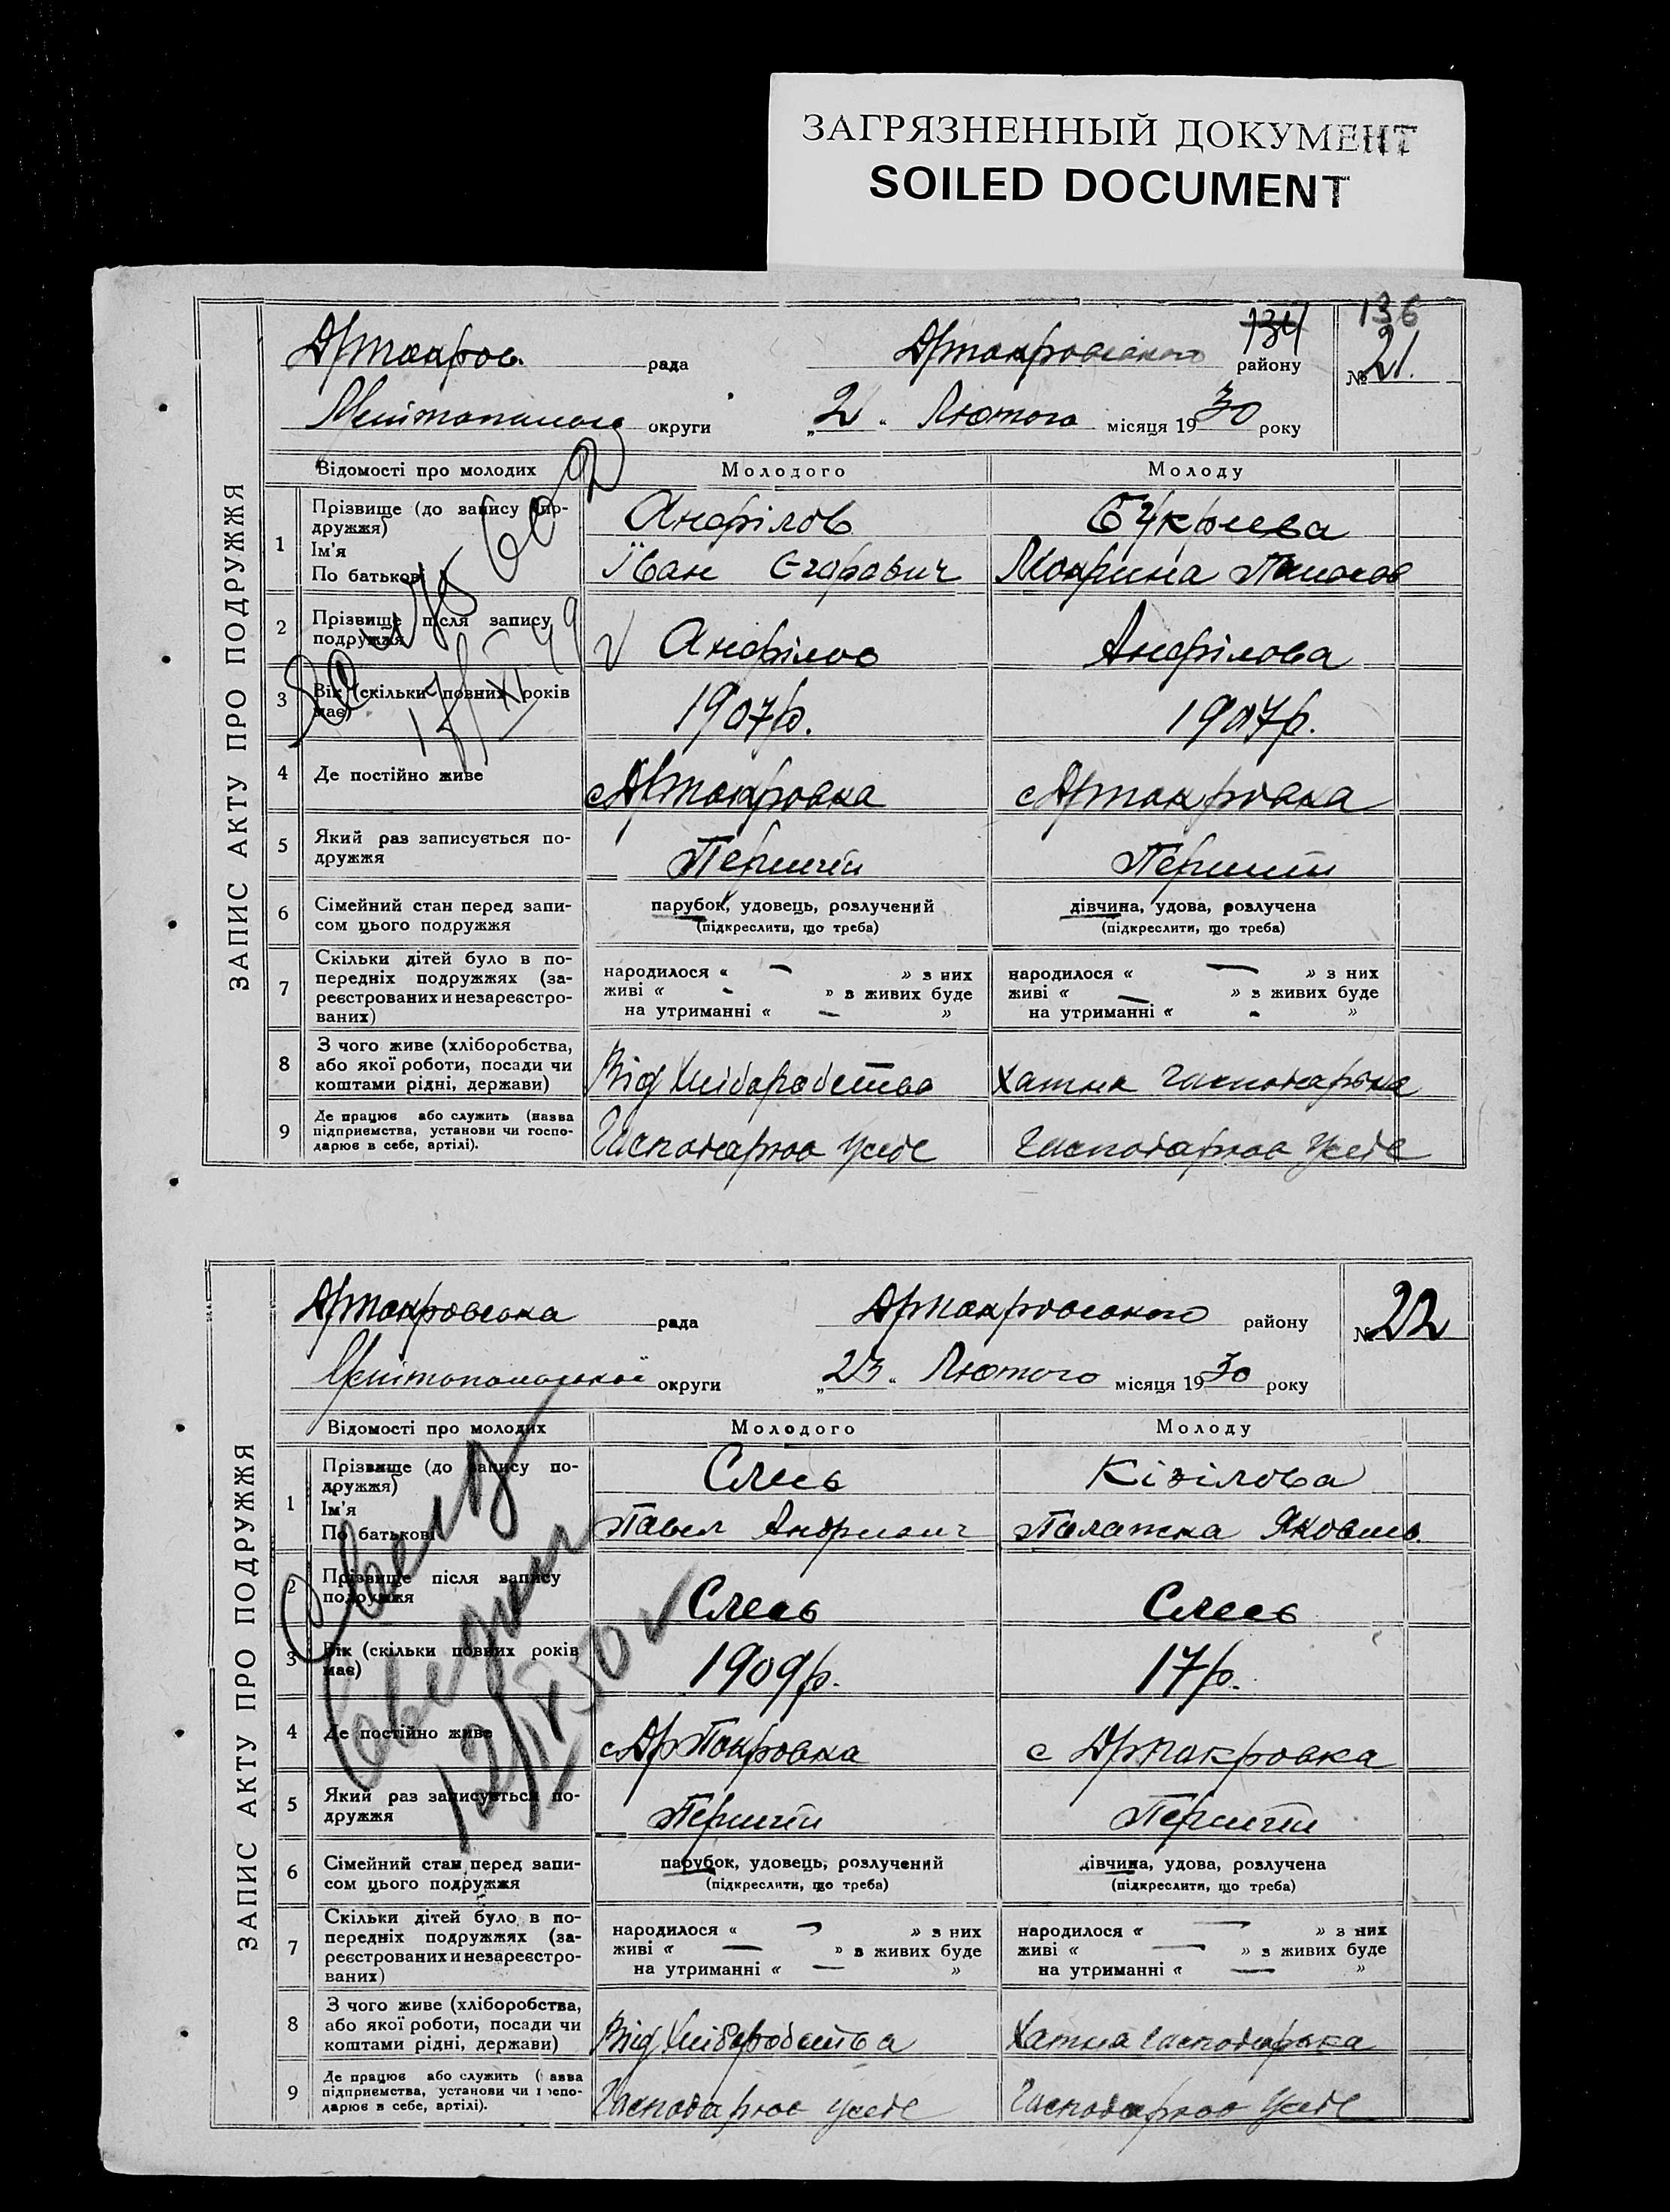 ЗАГРЯЗНЕННЫЙ ДОКУМЕНТ
SOILED DOCUMENT
ЗАПИС АКТУ ПРО ПОДРУЖЖЯ
136
134
рада району № 21.
округи „2“ Лютого місяця 1930 року
Відомості про молодих Молодого Молоду
1 Прізвище (до запису по-
дружжя)
Анфілов Букреева
Ім'я
По батькові
Іван Єгорович Мокрина
2 Прізвище після запису
подружжя
Анфілов Анфілова
3 Вік (скільки повних років
має)
1907р. 1907р.
4 Де постійно живе
5 Який раз записується по-
дружжя
Перший Перший
6 Сімейний стан перед запи-
сом цього подружжя
парубок, удовець, розлучений дівчина, удова, розлучена
(підкреслити, що треба) (підкреслити, що треба)
7 Скільки дітей було в по-
передніх подружжях (за-
реєстрованих и незареєстро-
ваних)
народилося « — » з них народилося « — » з них
живі « - » в живих буде живі « — » з живих буде
на утриманні « — » на утриманні « - »
8 З чого живе (хліборобства,
або якої роботи, посади чи
коштами рідні, держави)
Від Хліборобства Хатня господарька
9 Де працює або служить (назва
підприємства, установи чи госпо-
дарює в себе, артілі).
Господарює усебе Господарює усебе
ЗАПИС АКТУ ПРО ПОДРУЖЖЯ
рада району № 22
округи „23“ Лютого місяця 1930 року
Відомості про молодих Молодого Молоду
1 Прізвище (до запису по-
дружжя)
Слесь Кізілова
Ім'я
По батькові
Павел Андриевич Палажка Яковлев.
2 Прізвище після запису
подружжя
Слесь Слесь
3 Вік (скільки повних років
має)
1909р. 17р.
4 Де постійно живе
с. ДрПокровка с ДрПокровка
5 Який раз записується по-
дружжя
Перший Перший
6 Сімейний стан перед запи-
сом цього подружжя
парубок, удовець, розлучений дівчина, удова, розлучена
(підкреслити, що треба) (підкреслити, що треба)
7 Скільки дітей було в по-
передніх подружжях (за-
реєстрованих и незареєстро-
ваних)
народилося « — » з них народилося « — » з них
живі « — » в живих буде живі « — » з живих буде
на утриманні « — » на утриманні « — »
8 З чого живе (хліборобства,
або якої роботи, посади чи
коштами рідні, держави)
Від Хліборобства Хатня господарька
9 Де працює або служить (назва
підприємства, установи чи госпо-
дарює в себе, артілі).
Господарює усебе Господарює усебе